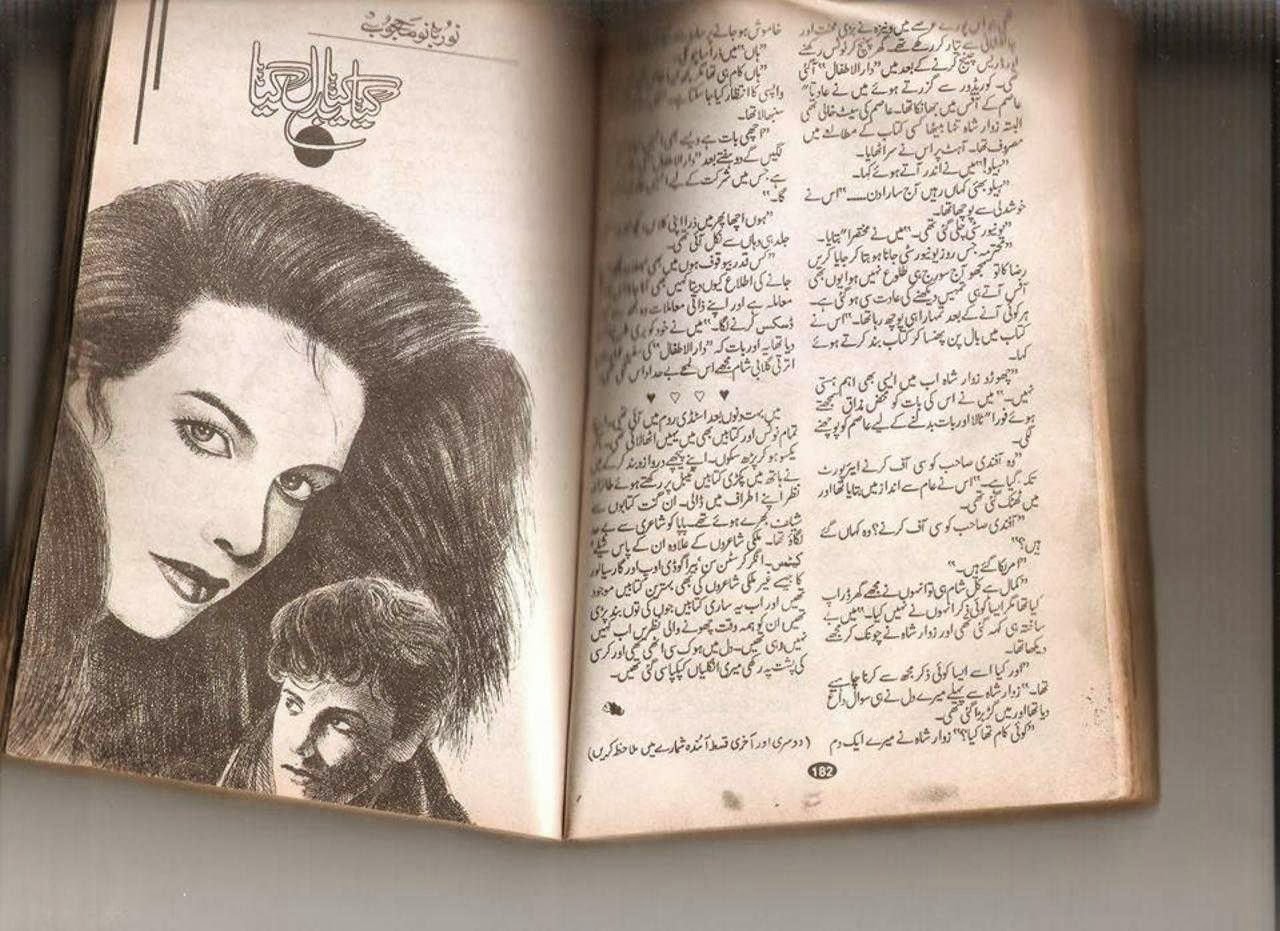 نور بانو محجوب
کیا بتا دل کیا
چینج کرنے کے بعد میں "دارالاطفال" آ گئی
تھی۔ کوریڈور سے گزرتے ہوئے میں نے عادتاً
عاصم کے آفس میں جھانکا تھا۔ عاصم کی سیٹ خالی تھی
البتہ زوار شاہ تنہا بیٹھا کسی کتاب کے مطالعے میں
مصروف تھا۔ آہٹ پر اس نے سر اٹھایا۔
"ہیلو!" میں نے اندر آتے ہوئے کہا۔
"ہیلو بھئی کہاں رہیں آج سارا دن......" اس نے
خوشدلی سے پوچھا تھا۔
"یونیورسٹی چلی گئی تھی۔" میں نے مختصراً بتایا۔
"محترمہ جس روز یونیورسٹی جانا ہو بتا کر جایا کریں
رضا کا تو سمجھو آج سورج ہی طلوع نہیں ہوا یوں بھی
آفس آتے ہی تمہیں دیکھنے کی عادت سی ہو گئی ہے۔
ہر کوئی آنے کے بعد تمہارا ہی پوچھ رہا تھا۔" اس نے
کتاب میں بال پن پھنسا کر کتاب بند کرتے ہوئے
کہا۔
"چھوڑو زوار شاہ اب میں ایسی بھی اہم ہستی
نہیں۔" میں نے اس کی بات کو محض مذاق سمجھتے
ہوئے فوراً ٹالا اور بات بدلنے کے لیے عاصم کو پوچھنے
لگی۔
"وہ آفندی صاحب کو سی آف کرنے ایئرپورٹ
تک گیا ہے۔" اس نے عام سے انداز میں بتایا تھا اور
میں ٹھٹک گئی تھی۔
"آفندی صاحب کو سی آف کرنے؟ وہ کہاں گئے
ہیں؟"
"امریکا گئے ہیں۔"
"کمال ہے کل شام ہی تو انہوں نے مجھے گھر ڈراپ
کیا تھا مگر ایسا کوئی ذکر انہوں نے نہیں کیا۔" میں بے
ساختہ ہی کہہ گئی تھی اور زوار شاہ نے چونک کر مجھے
دیکھا تھا۔
"اور کیا اسے ایسا کوئی ذکر مجھ سے کرنا چاہیے
تھا۔" زوار شاہ سے پہلے میرے دل نے ہی سوال داغ
دیا تھا اور میں گڑبڑا گئی تھی۔
"کوئی کام تھا کیا؟" زوار شاہ نے میرے ایک دم
خاموش ہو جانے پر
"ہاں" میں
"ہاں کام ہی تھا مگر
واپسی کا انتظار کیا جا سکتا ہے
سنبھالا تھا۔
"اچھی بات ہے ویسے بھی
لگیں گے دو ہفتے بعد "دارالاطفال"
ہے جس میں شرکت کے لیے
گا۔"
"ہوں اچھا پھر میں ذرا اپنی کلاس
جلد ہی وہاں سے نکل آئی تھی۔
"کس قدر بیوقوف ہوں میں بھی
جانے کی اطلاع کیوں دیتا
معاملہ ہے اور اپنے ذاتی معاملات وہ
ڈسکس کرنے لگا۔" میں نے خود کو بری طرح
دیا تھا۔ یہ اور بات کہ "دارالاطفال" کی
اترتی گلابی شام مجھے اس لمحے بے حد اداس لگی تھی۔
♥ ♡ ♡ ♥
میں بہت دنوں بعد اسٹڈی روم میں آئی تھی۔
تمام نوٹس اور کتابیں بھی میں یہیں اٹھا لائی تھی۔
یکسو ہو کر پڑھ سکوں۔ اپنے پیچھے دروازہ بند کرکے میں
نے ہاتھ میں پکڑی کتابیں ٹیبل پر رکھتے ہوئے طائرانہ
نظر اپنے اطراف میں ڈالی۔ ان گنت کتابوں سے
شیلف بھرے ہوئے تھے۔ پاپا کو شاعری سے بے حد
لگاؤ تھا۔ ملکی شاعروں کے علاوہ ان کے پاس شیلے'
کیٹس۔
کا جیسے غیر ملکی شاعروں کی بھی بہترین کتابیں موجود
تھیں اور اب یہ ساری کتابیں جوں کی توں بند پڑی
تھیں ان کو ہمہ وقت چھونے والی نظریں اب کہیں
نہیں رہی تھیں۔ دل میں ہوک سی اٹھی تھی اور کرسی
کی پشت پہ رکھی میری انگلیاں کپکپا سی گئی تھیں۔
(دوسری اور آخری قسط آئندہ شمارے میں ملاحظہ کریں)
182